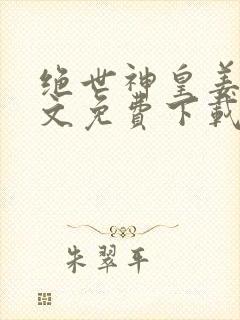 绝世神皇姜
文免费下载
朱翠平